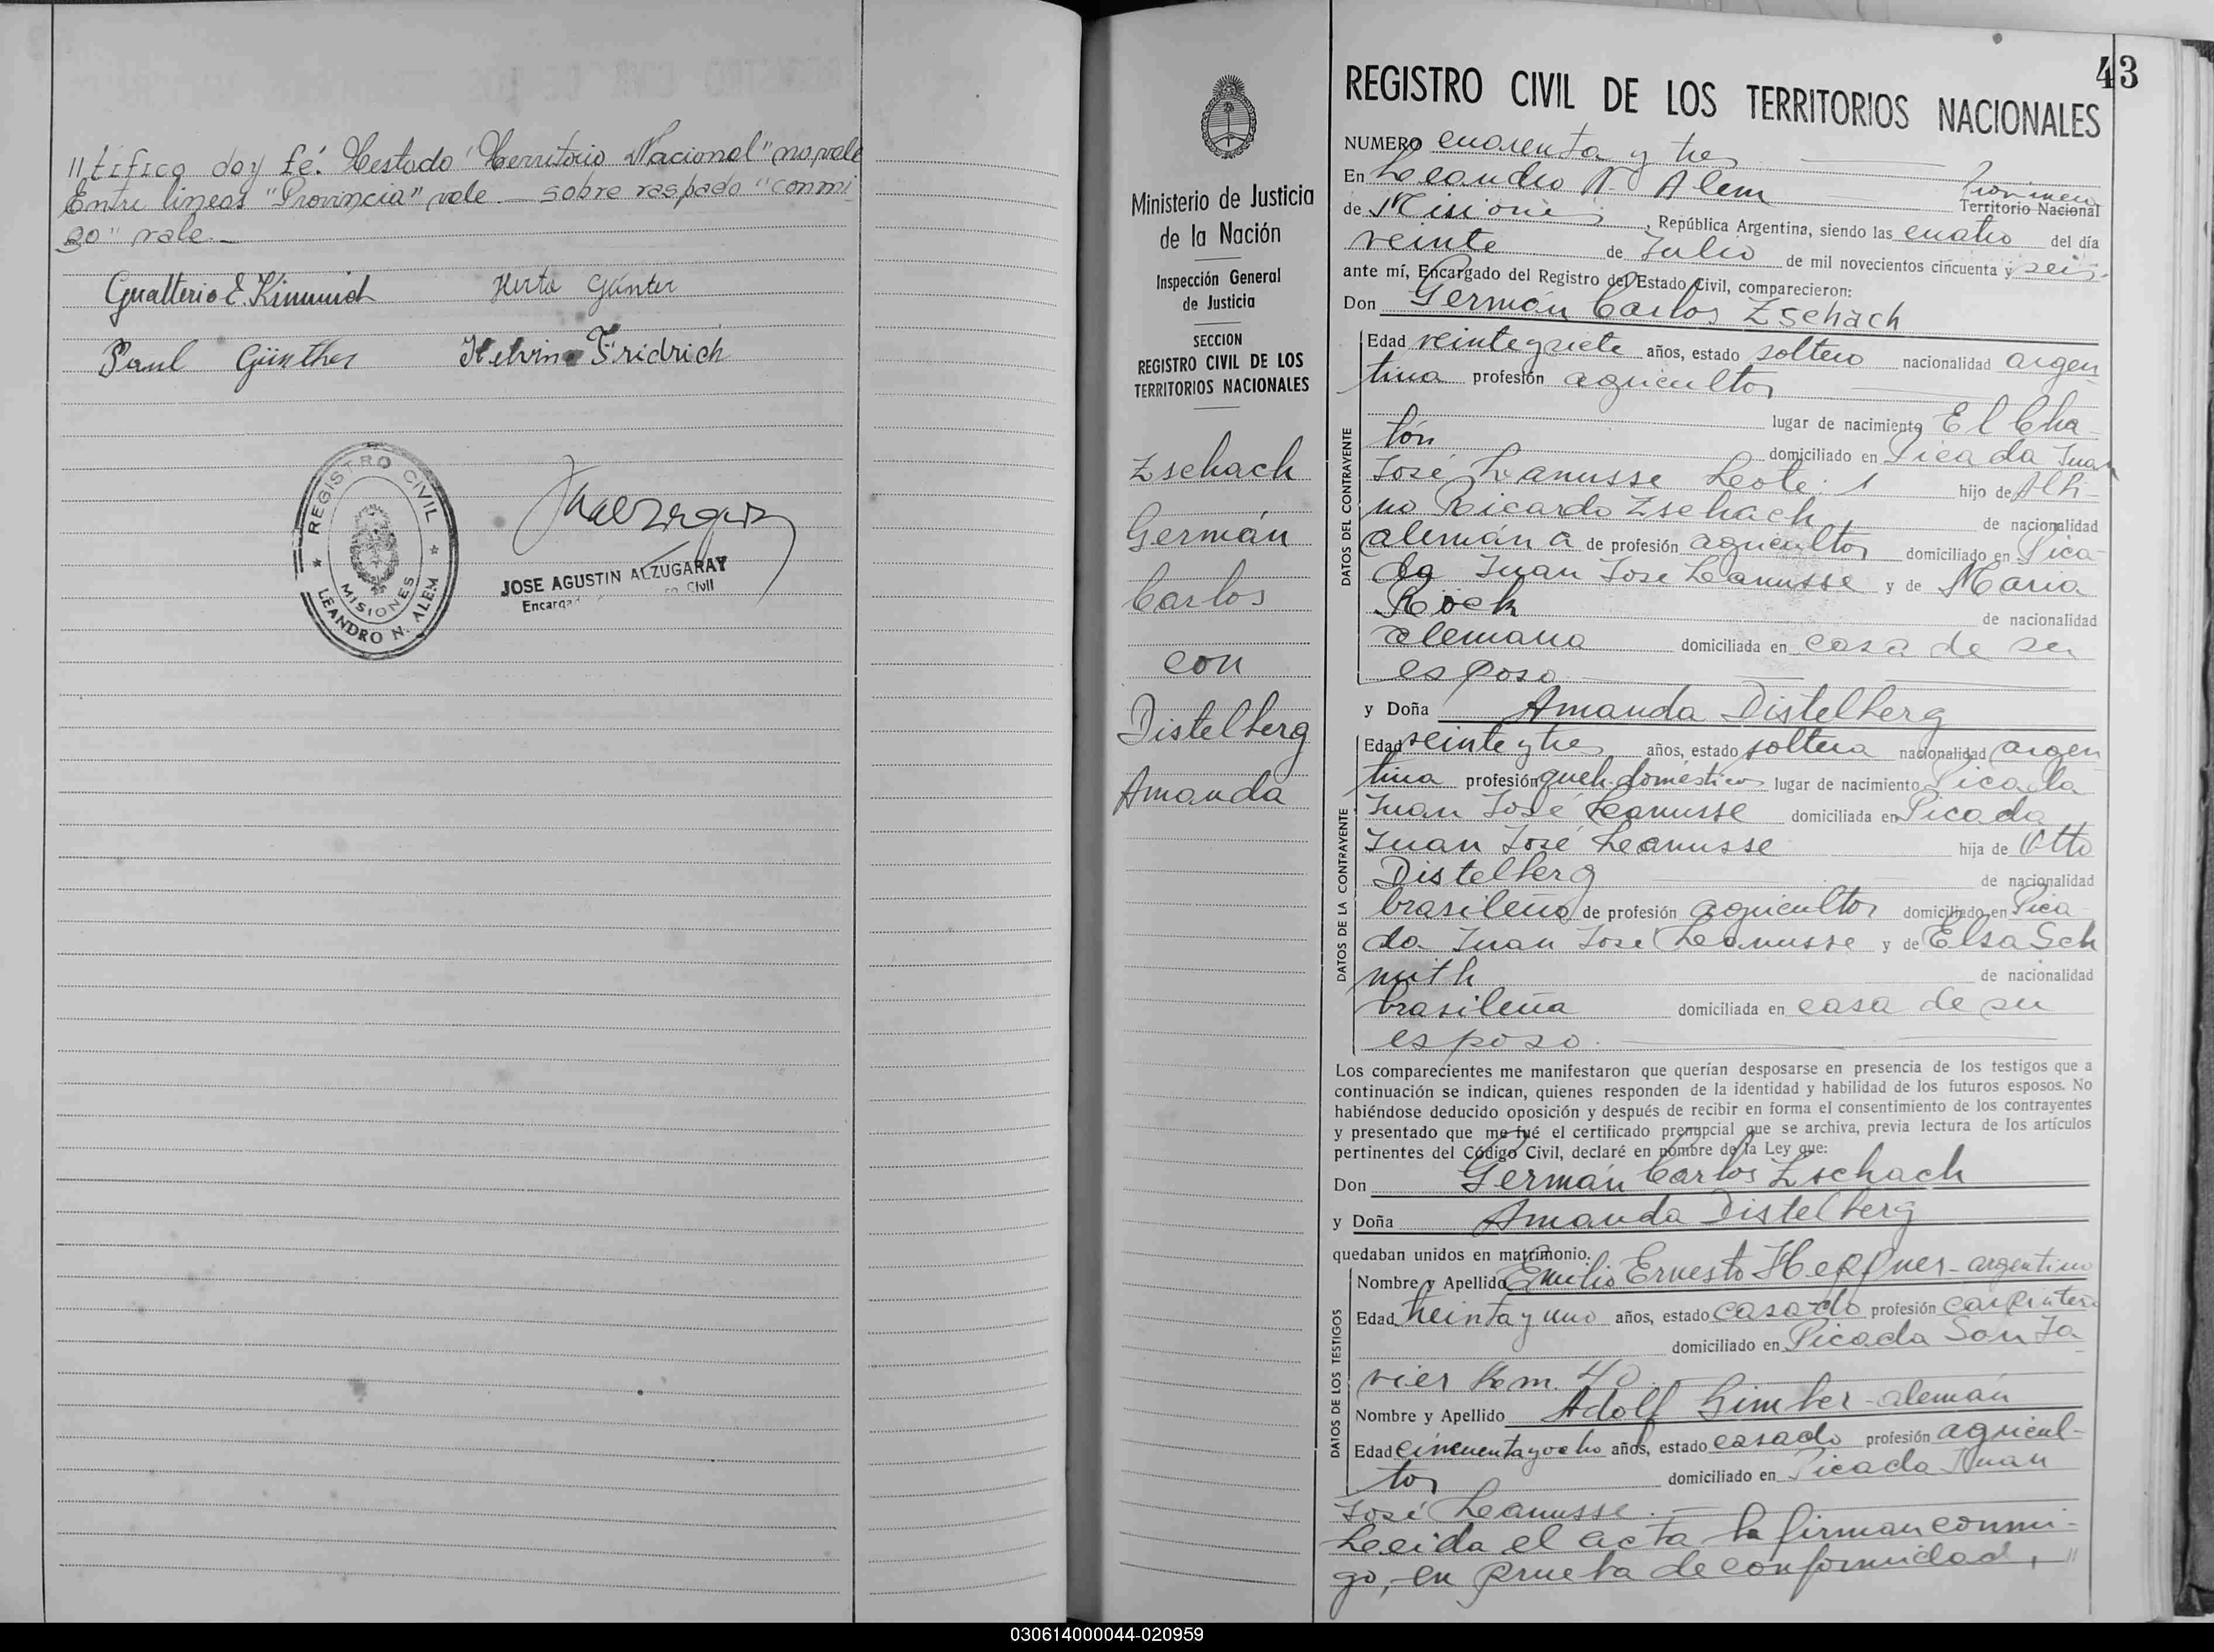 //tifico doy fé. Testado "Territorio Nacional" no vale
Entre lineas "Provincia" vale — sobre raspado "conmi
go" vale.—
Gualterio E. Kimmich Herta Günter
Paul Günther Helvino Fridrich
REGISTRO CIVIL
MISIONES
LEANDRO N. ALEM
JOSE AGUSTIN ALZUGARAY
Civil
Ministerio de Justicia
de la Nación
Inspección General
de Justicia
SECCION
REGISTRO CIVIL DE LOS
TERRITORIOS NACIONALES
Zschach
Germán
Carlos
con
Distelberg
Amanda
43
REGISTRO CIVIL DE LOS TERRITORIOS NACIONALES
NUMERO cuarenta y tres
En Leandro N. Alem Provincia Territorio Nacional
de Misiones, República Argentina, siendo las cuatro del día
veinte de Julio de mil novecientos cincuenta y seis
ante mí, Encargado del Registro del Estado Civil, comparecieron:
Don Germán Carlos Zschach
DATOS DEL CONTRAYENTE
Edad veintegsiete años, estado soltero nacionalidad argen
tina profesión agricultor
lugar de nacimiento El Cha-
tón domiciliado en Picada Juan
José Lanusse Lote: 1 hijo de Albi-
no Ricardo Zschach de nacionalidad
alemána de profesión agricultor domiciliado en Pica-
da Juan Jose Lanusse y de Maria
Röck de nacionalidad
alemana domiciliada en casa de su
esposo.
y Doña Amanda Distelberg
DATOS DE LA CONTRAYENTE
Edad veinte y tres años, estado soltera nacionalidad argen
tina profesión queh. domésticos lugar de nacimiento Picada
Juan José Lanusse domiciliada en Picada
Juan José Lanusse hija de Otto
Distelberg de nacionalidad
brasileña de profesión agricultor domiciliado en Pica-
da Juan José Lanusse y de Elsa Sch
mith de nacionalidad
brasileña domiciliada en casa de su
esposo.
Los comparecientes me manifestaron que querían desposarse en presencia de los testigos que a
continuación se indican, quienes responden de la identidad y habilidad de los futuros esposos. No
habiéndose deducido oposición y después de recibir en forma el consentimiento de los contrayentes
y presentado que me fué el certificado prenupcial que se archiva, previa lectura de los artículos
pertinentes del Código Civil, declaré en nombre de la Ley que:
Don Germán Carlos Zschach
y Doña Amanda Distelberg
quedaban unidos en matrimonio.
DATOS DE LOS TESTIGOS
Nombre y Apellido Emilio Ernesto Heppner - argentino
Edad treinta y uno años, estado casado profesión carpintero
domiciliado en Picada San Ja
vier Km. 40.
Nombre y Apellido Adolf Gimber - alemán
Edad cincuenta y ocho años, estado casado profesión agricul-
tor domiciliado en Picada Juan
José Lanusse.
Leeida el acta la firman conmi-
go, en prueba de conformidad, //
030614000044-020959